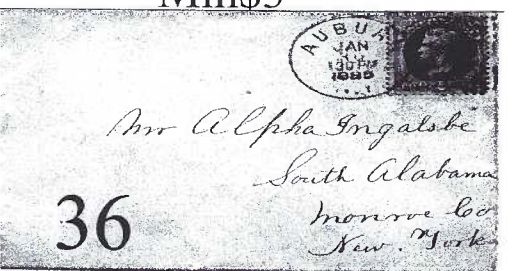 Min$5
AUBU
JAN
130 PM
1885
Mr Alpha Ingalsbe
South Alabama
Monroe Co
New. York
36